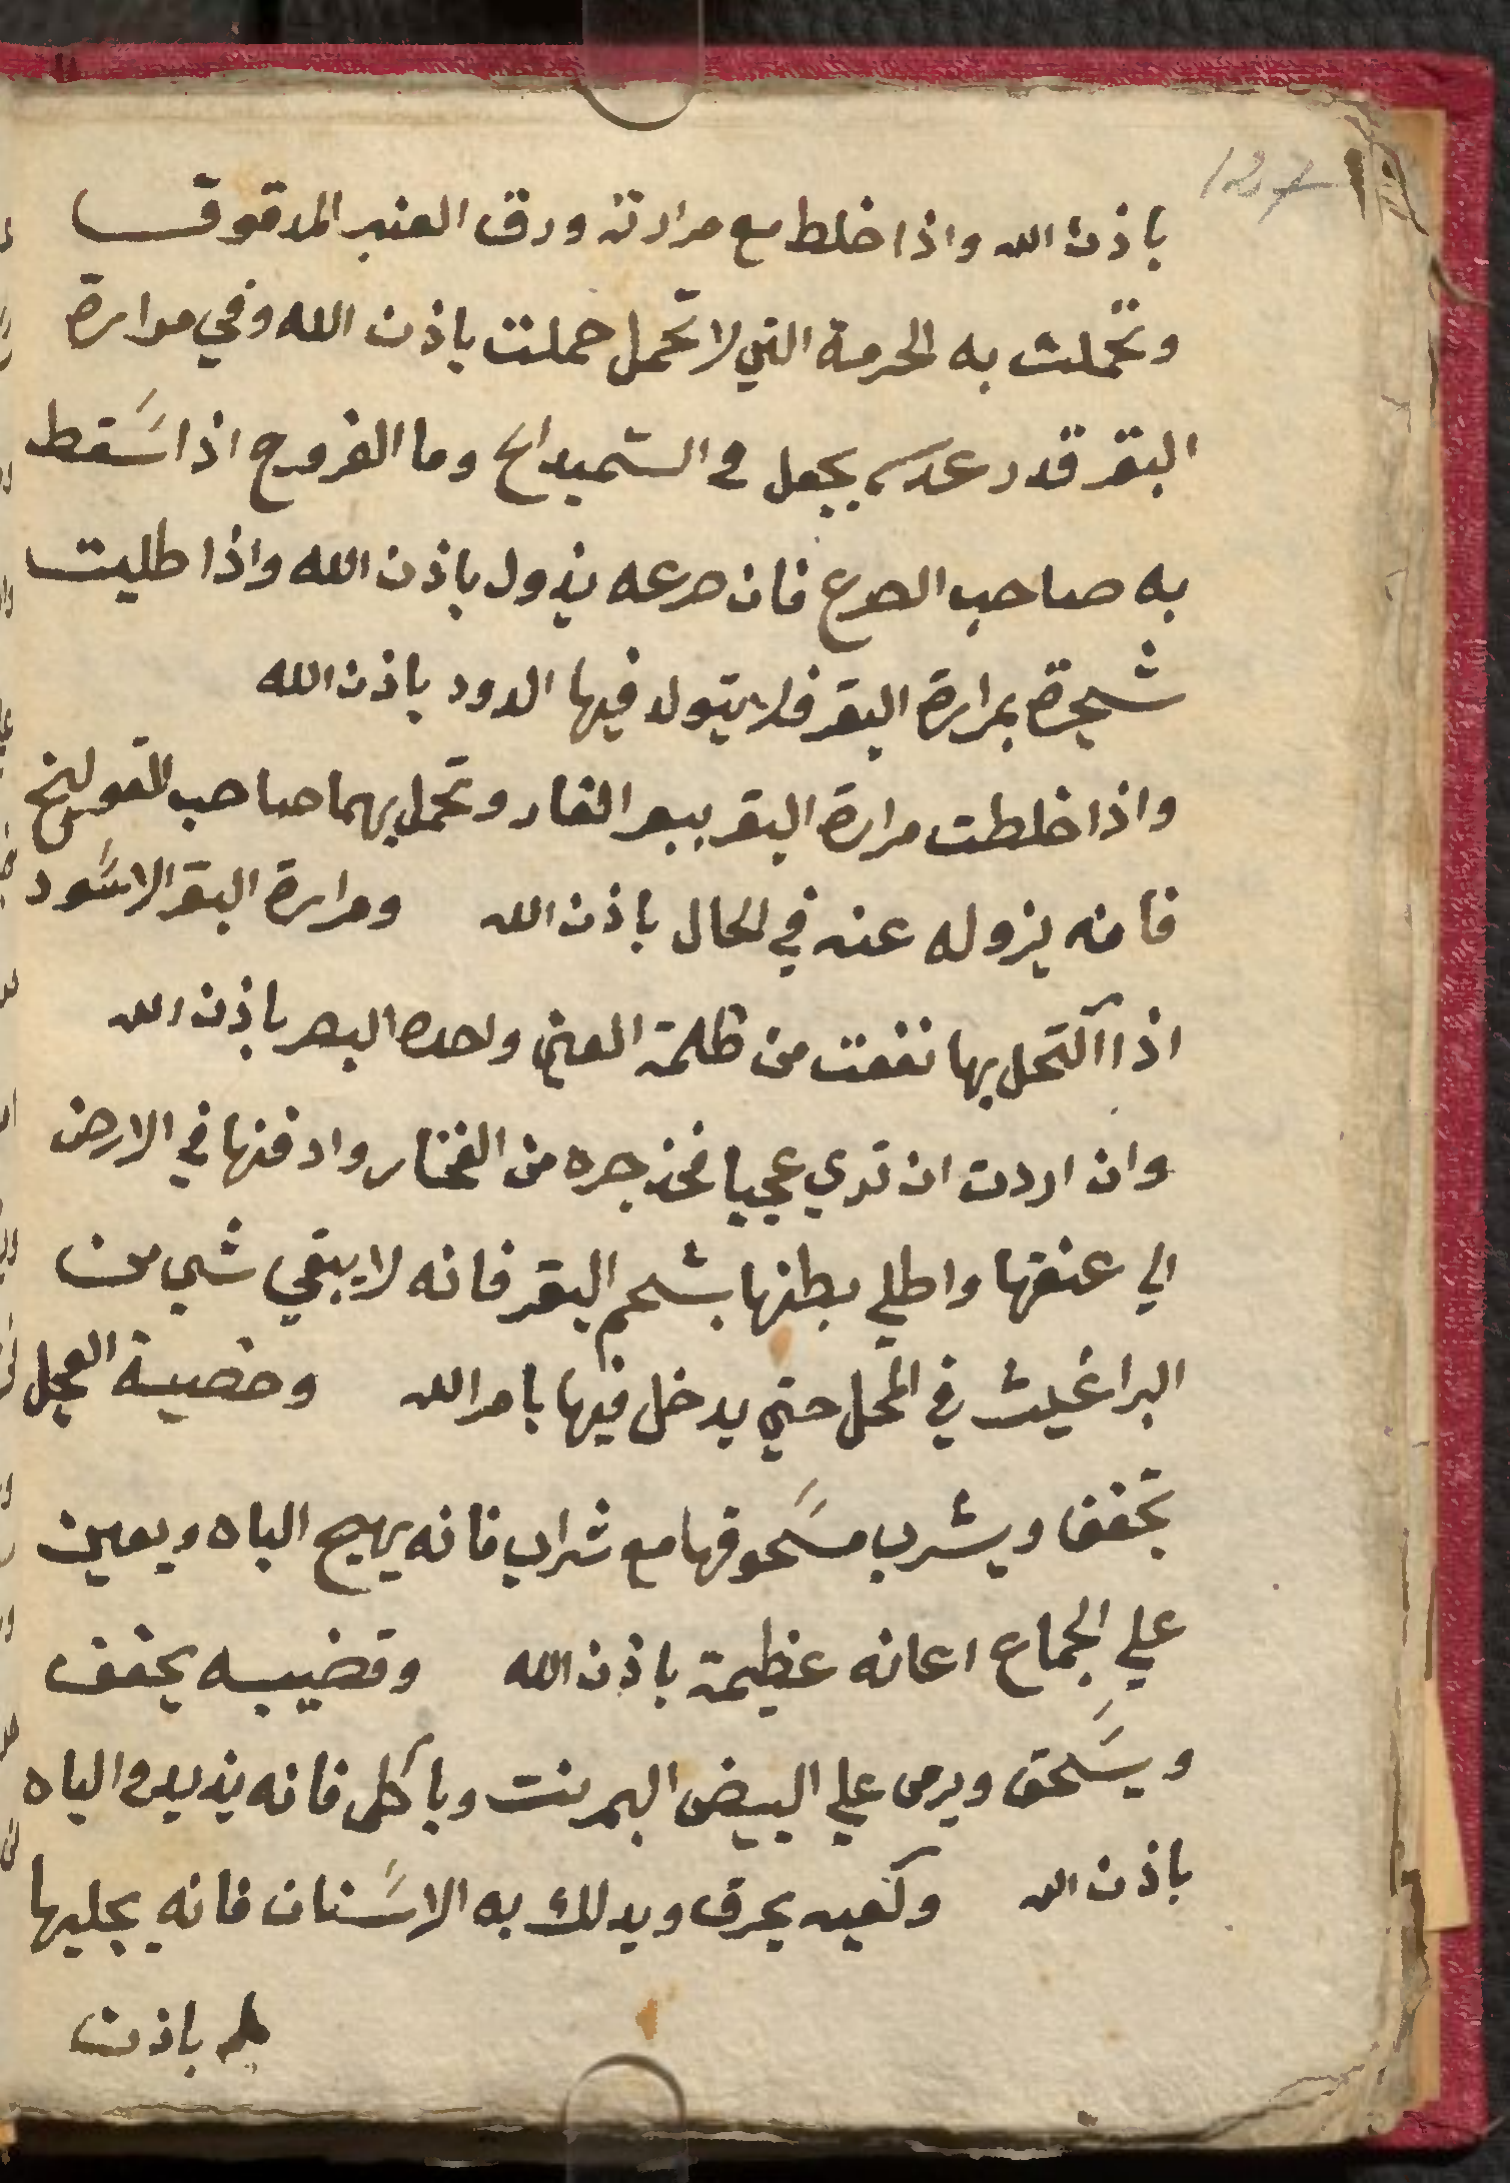 127
باذن الله واذا خلط مع مرارته ورق العنبر المدقوق
وتحملت به الحرمة التي لا تحمل حملت باذن الله وفي مرارة
البقر قدر عدسه يجعل في وما الفروج اذا سقط
به صاحب الصرع فان صرعه يذول باذن الله واذا طليت
شجرة بمرارة البقر فلا يتولد فيها الدود باذن الله
واذا خلطت مرارة البقر ببعر الفار وتحمل بهما صاحب القولنج
فانه يزوله عنه في الحال باذن الله ومرارة البقر الاسود
اذا اكتحل بها نفعت من ظلمة العين واحده البصر باذن الله
وان اردت ان تري عجيبا فخذ جره من الفخار وادفنها في الارض
الي عنقها واطلي بطنها بشحم البقر فانه لا يبقي شي من
البراغيث في المحل حتي يدخل فيها بامر الله وخصية العجل
تجفف ويشرب مسحوقها مع شراب فانه يهيج الباه ويعين
علي الجماع اعانه عظيمة باذن الله وقضيبه يجفف
ويسحق ويرمى علي البيض البمرنت وياكل فانه يذيد في الباه
باذن الله وكعبه يحرق ويدلك به الاسنان فانه يجليها
باذن